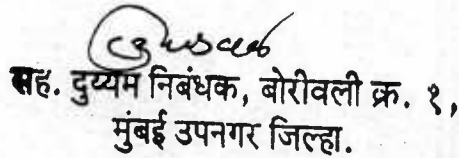 सह. दुय्यम निबंधक, बोरीवली क्र. १,
मुंबई उपनगर जिल्हा.